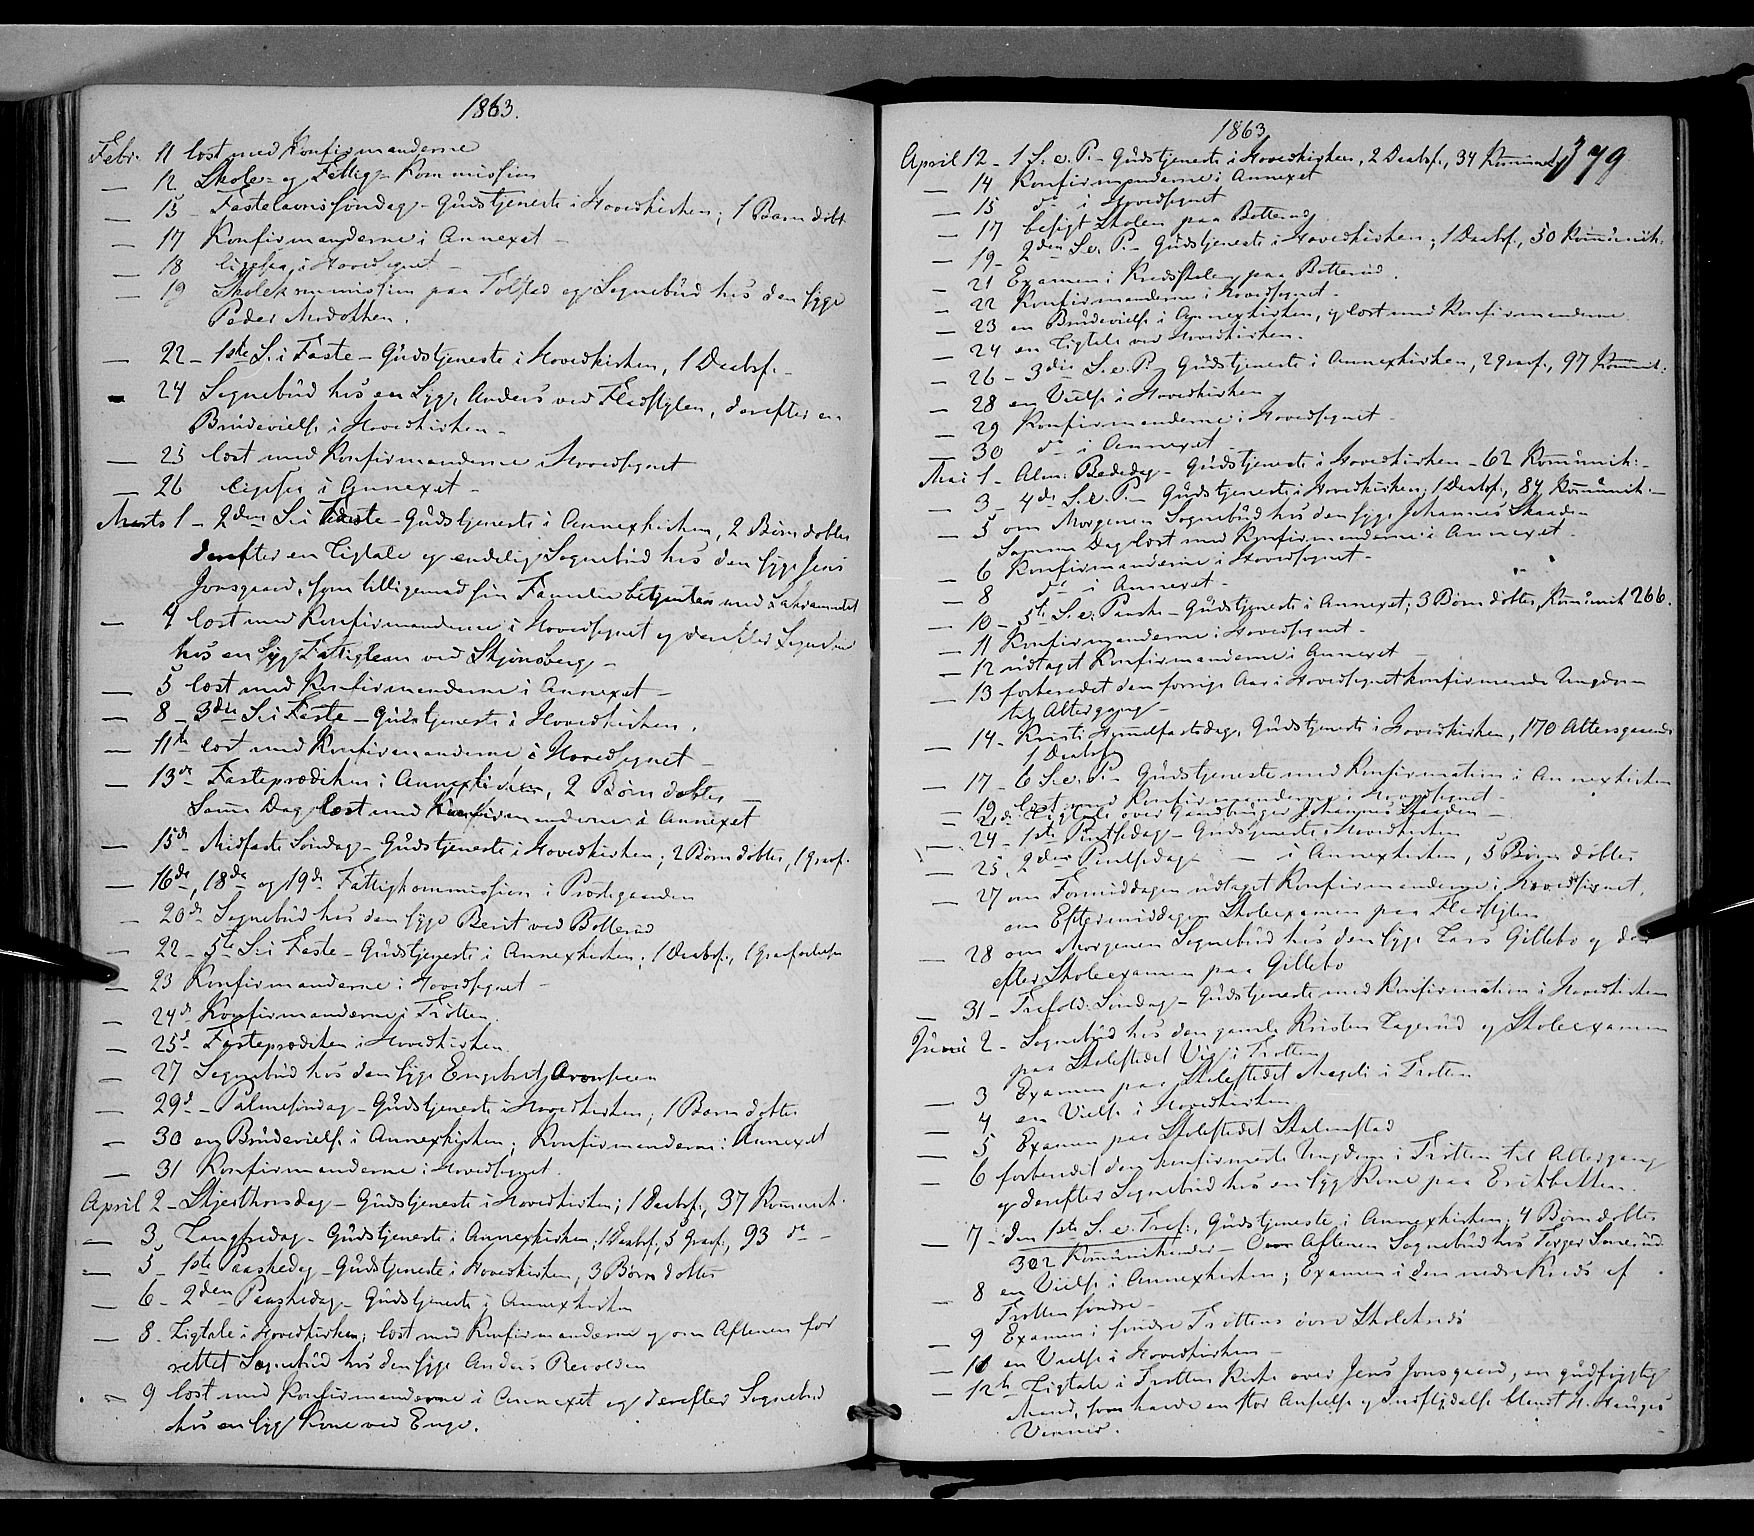 1863.
Febr. 11 læst med Konfirmanderne
— 12 Skole- og Fattig-Kommission
— 15 - Fastelavns Søndag - Gudstjeneste i Hovedkirken; 1 Barn døbt
— 17 Konfirmanderne i Annexet -
— 18 ligesaa i Hovedsognet -
— 19 Skolekommission paa Tolstad og Sognebud hos den syge
Peder
— 22 - 1ste S. i Faste - Gudstjeneste i Hovedkirken, 1 Daabsf. -
— 24 Sognebud hos en Syg, Anders ved Flesstylen, derefter en
Brudevielse i Hovedkirken -
— 25 læst med Konfirmanderne i Hovedsognet
— 26 ligesaa i Annexet -
Marts 1 - 2den S. i Faste - Gudstjeneste i Annexkirken, 2 Børn døbtes
derefter en Ligtale og endelig Sognebud hos den syge Jens
Jonsgaard, som tilligemed sin Familie betjentes med Sakramentet
— 4 læst med Konfirmanderne i Hovedsognet og derefter Sognebud
hos en syg Fattiglem ved Skjønsberg -
— 5 læst med Konfirmanderne i Annexet -
— 8 - 3die S. i Faste - Gudstjeneste i Hovedkirken.
— 11te læst med Konfirmanderne i Hovedsognet -
— 13de Fasteprædiken i Annexkirken, 2 Børn døbtes -
Samme Dag læst med Konfirmanderne i Annexet
— 15de Midfaste Søndag - Gudstjeneste i Hovedkirken; 2 Børn døbtes, 1 Graf.
— 16de, 18de og 19de Fattigkommission i Prestegaarden
— 20de Sognebud hos den syge Berit ved Botterud
— 22 - 5te S. i Faste - Gudstjeneste i Annexkirken; 1 Daabsf., 1
— 23 Konfirmanderne i Hovedsognet -
— 24de Konfirmanderne i Trøtten.
— 25de Fasteprædiken i Hovedkirken.
— 27 Sognebud hos den syge Engebret
— 29de - Palmesøndag - Gudstjeneste i Hovedkirken; 1 Barn døbtes
— 30 en Brudevielse i Annexkirken; Konfirmanderne i Annexet
— 31 Konfirmanderne i Hovedsognet.
April 2 - Skjerthorsdag - Gudstjeneste i Hovedkirken; 1 Daabsf., 37 Kommunik.
— 3. Langfredag - Gudstjeneste i Annexkirken; 1 Daabsf., 5 Graf., 93 do -
— 5 - 1ste Paaskedag - Gudstjeneste i Hovedkirken, 3 Børn døbtes
— 6 - 2den Paaskedag - Gudstjeneste i Annexkirken
— 8 - Ligtale i Hovedkirken; læst med Konfirmanderne og om Aftenen for
rettet Sognebud hos den syge Anders Revolden
— 9 læst med Konfirmanderne i Annexet og derefter Sognebud
hos en syg Kone ved Enge.
1863
379
April 12 - 1 S. e. P. - Gudstjeneste i Hovedkirken, 2 Daabsf., 34 Kommunik.
— 14 Konfirmanderne i Annexet
— 15 do i Hovedsognet
— 17 besøgt Skolen paa Botterud
— 19 - 2den S. e. P. - Gudstjeneste i Hovedkirken; 1 Daabsf., 50 Kommunik.
— 21 Examen i Kredsskolen paa Botterud.
— 22 Konfirmanderne i Hovedsognet -
— 23 en Brudevielse i Annexkirken, og læst med Konfirmanderne
— 24 en Ligtale ved Hovedkirken -
— 26 - 3die S. e. P. - Gudstjeneste i Annexkirken, 2 Graf., 97 Kommunik.
— 28 en Vielse i Hovedkirken
— 29 Konfirmanderne i Hovedsognet -
— 30 do i Annexet -
Mai 1 - Alm. Bededag - Gudstjeneste i Hovedkirken - 62 Kommunik. -
— 3 - 4de S. e. P. - Gudstjeneste i Hovedkirken; 1 Daabsf., 84 Kommunik. -
— 5 om Morgenen Sognebud hos den syge Johannes Skaaden
Samme Dag læst med Konfirmanderne i Annexet.
— 6 Konfirmanderne i Hovedsognet -
— 8 do i Annexet -
— 10 - 5te S. e. Paask. - Gudstjeneste i Annexet; 3 Børn døbtes, Kommunik 266.
— 11 Konfirmanderne i Hovedsognet -
— 12 udtaget Konfirmanderne i Annexet -
— 13 forberedet den forrige Aar i Hovedsognet konfirmerede Ungdom
til Altergang -
— 14 - Kristi Himmelfartsdag, Gudstjeneste i Hovedkirken, 170 Altergjæster
1 Daabsf.
— 17 - 6 S. e. P. - Gudstjeneste med Konfirmation i Annexkirken
— 19 læst med Konfirmanderne i Hovedsognet -
— 21de Ligtale over Gaardbruger Johannes Skaaden -
— 24 - 1ste Pintsedag - Gudstjeneste i Hovedkirken
— 25, 2den Pintsedag - — i Annexkirken, 5 Børn døbtes
— 27 om Formiddagen udtaget Konfirmanderne i Hovedsognet,
om Eftermiddagen Skoleexamen paa Flesstylen
— 28 om Morgenen Sognebud hos den syge Lars Gillebo og der
efter Skoleexamen paa Gillebo
— 31 - Trefold. Søndag - Gudstjeneste med Konfirmation i Hovedkirken
Juni 2 - Sognebud hos den gamle Kristen Lagerud og Skoleexamen
paa Skolestedet Vig i Trøtten
— 3 Examen paa Skolestedet Mageli i Trøtten
— 4 en Vielse i Hovedkirken
— 5 Examen paa Skolestedet Skalmstad
— 6 forberedt den konfirmerede Ungdom i Trøtten til Altergang
og derefter Sognebud hos en syg Kone paa Erikbakken.
— 7 - den 1ste S. e. Tref., Gudstjeneste i Annexkirken, 4 Børn døbtes
302 Kommunikanter - Om Aftenen Sognebud hos Terger
— 8 en Vielse i Annexkirken; Examen i den nedre Kreds af
Trøtten søndre -
— 9 Examen i søndre Trøttens øvre Skolekreds
— 10 en Vielse i Hovedkirken -
— 12te Ligtale i Trøtten Kirke over Jens Jonsgaard, en gudfrygtig
Mand, som havde en stor Anseelse og Indflydelse blandt H. Hauges
Venner.